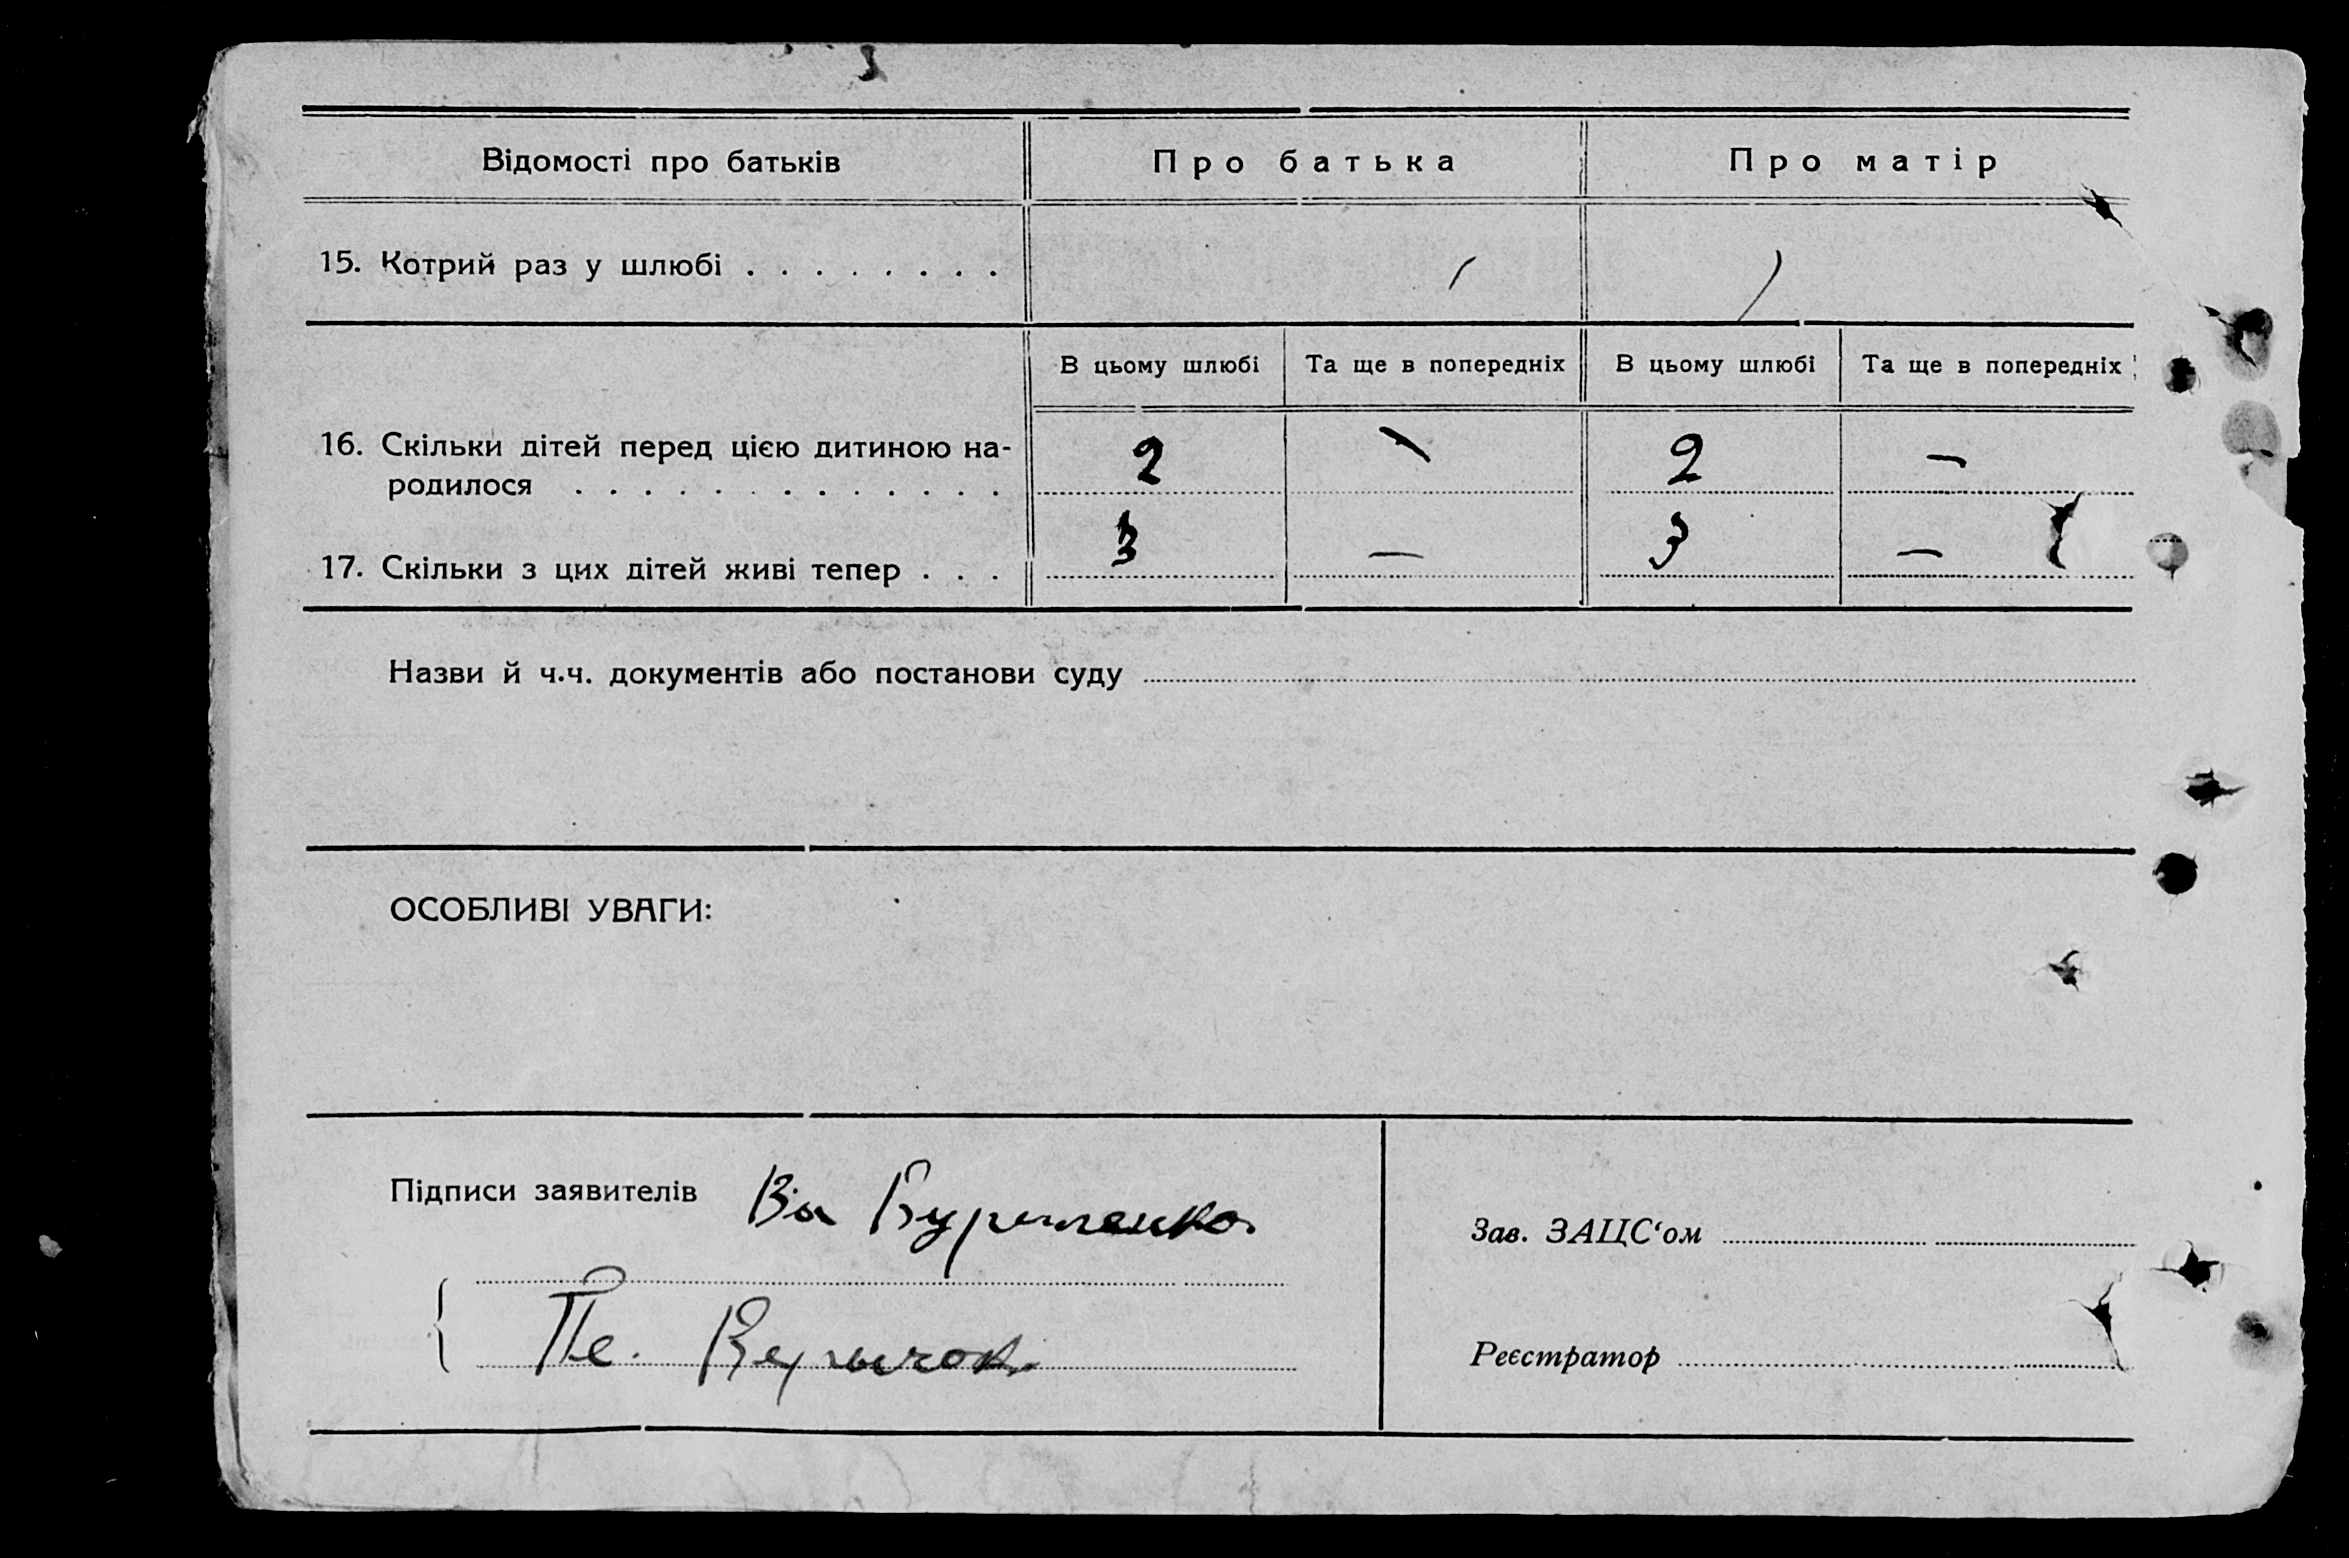 Відомості про батьків Про батька Про матір
15. Котрий раз у шлюбі . . . . . . . . 1 1
В цьому шлюбі Та ще в попередніх В цьому шлюбі Та ще в попередніх
16. Скільки дітей перед цією дитиною на-
родилося . . . . . . . . . . . . . 2 – 2 –
17. Скільки з цих дітей живі тепер . . . 3 – 3 –
Назви й ч.ч. документів або постанови суду
ОСОБЛИВІ УВАГИ:
Підписи заявителів
Зав. ЗАЦС‘ом
Реєстратор